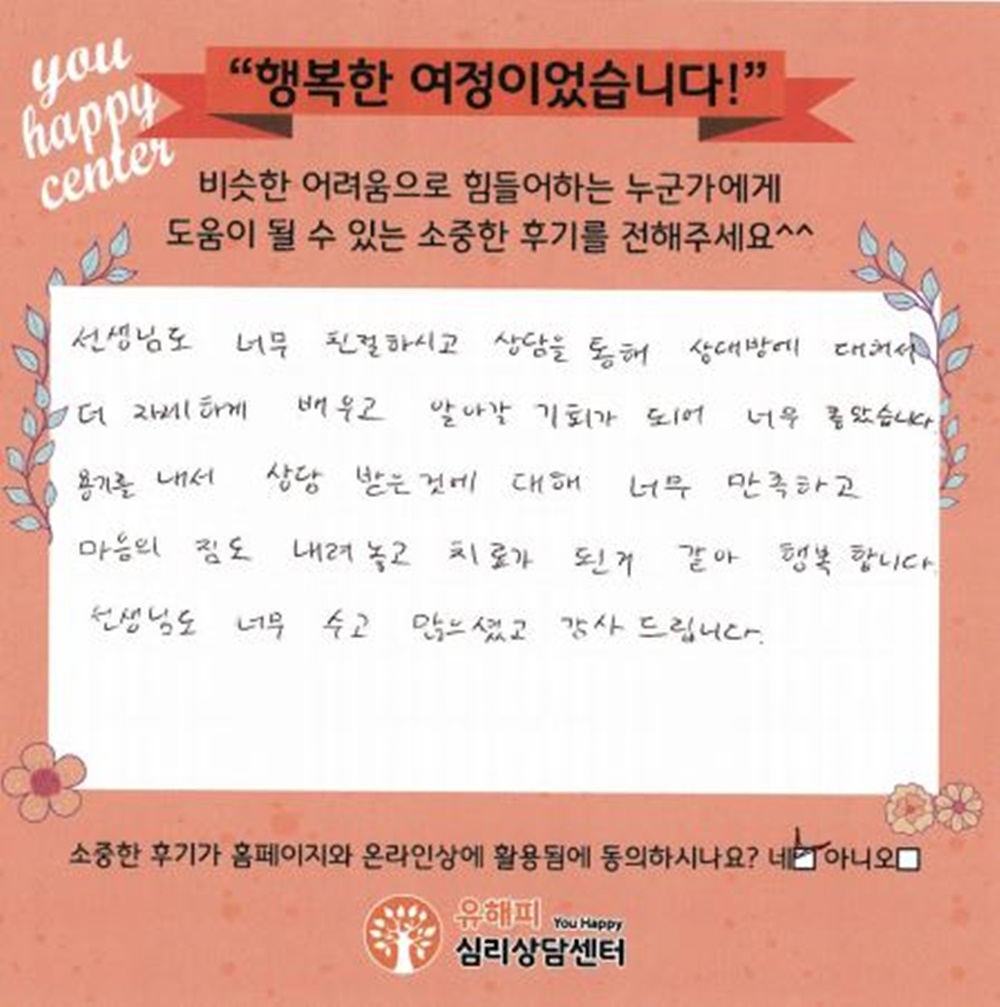 you
happy
center
“행복한 여정이었습니다!”
비슷한 어려움으로 힘들어하는 누군가에게
도움이 될 수 있는 소중한 후기를 전해주세요^^
선생님도 너무 친절하시고 상담을 통해 상대방에 대해서
더 자세하게 배우고 알아갈 기회가 되어 너무 좋았습니다.
용기를 내서 상담 받은것에 대해 너무 만족하고
마음의 짐도 내려놓고 치료가 된거 같아 행복합니다.
선생님도 너무 수고 많으셨고 감사드립니다.
소중한 후기가 홈페이지와 온라인상에 활용됨에 동의하시나요? 네 아니오
유해피 You Happy
심리상담센터